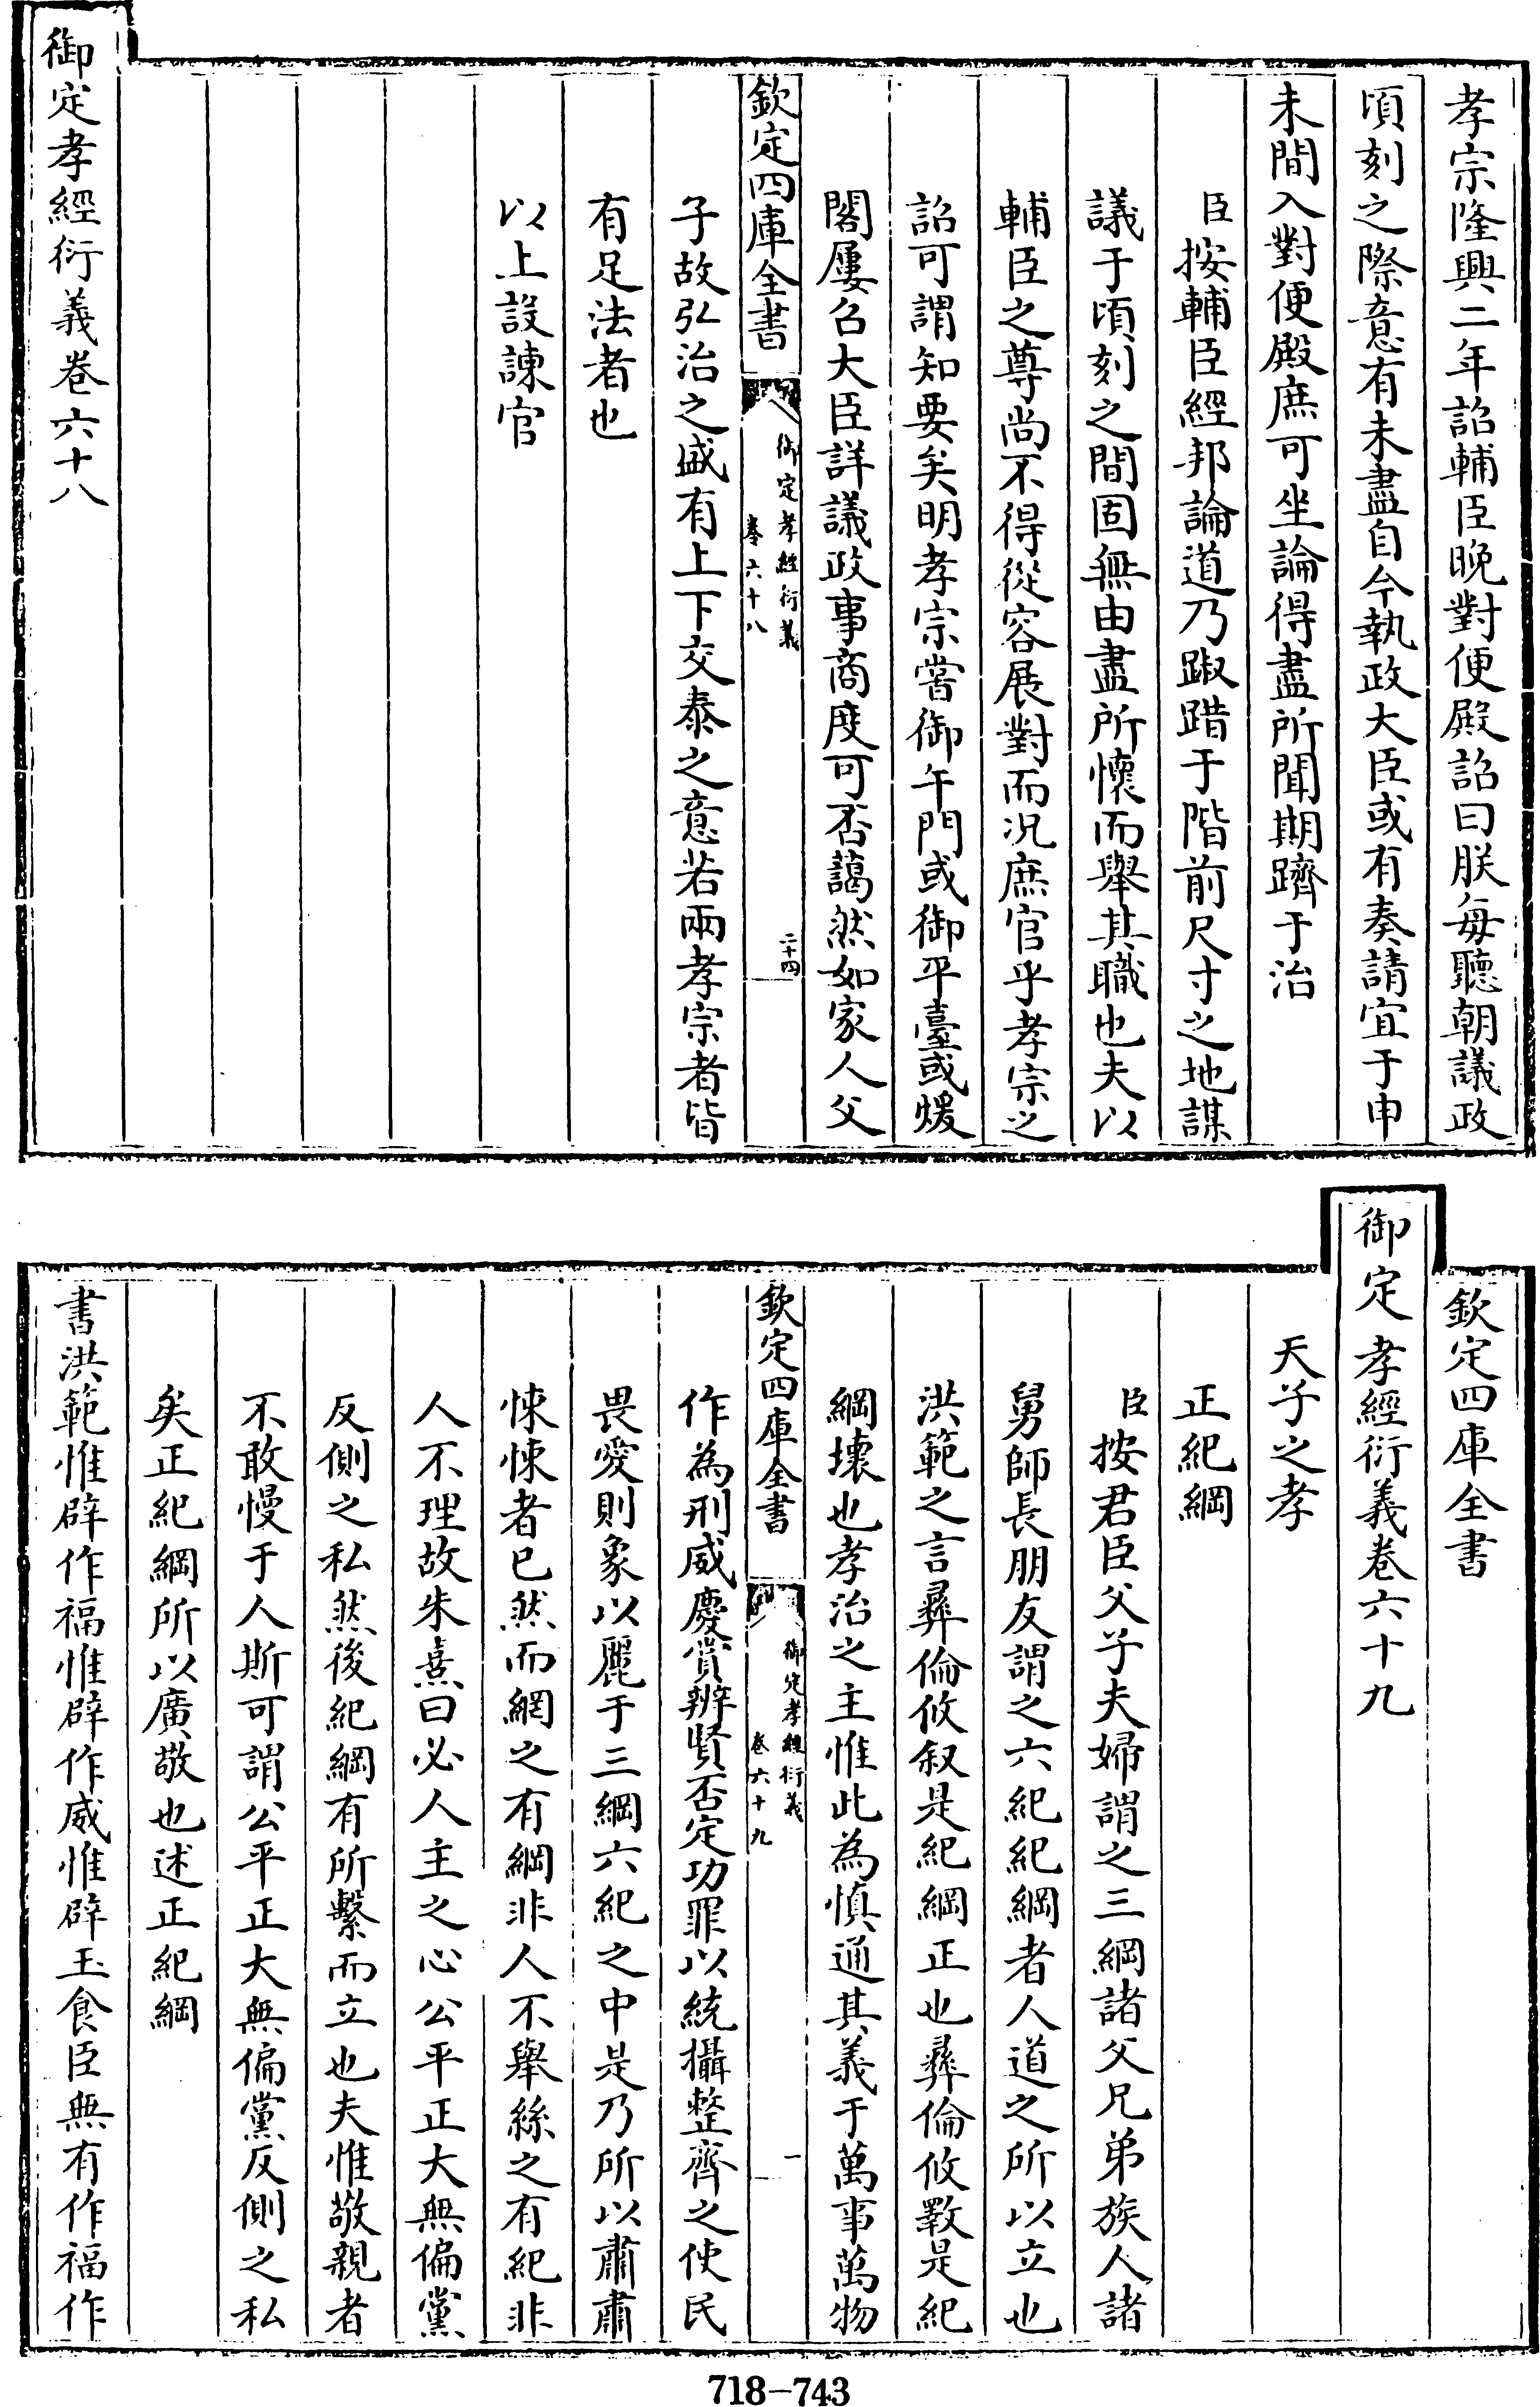 孝宗隆興二年詔輔臣晚對便殿詔曰朕每聽朝議政
頃刻之際意有未盡自今執政大臣或有奏請宜于申
未間入對便殿庶可坐論得盡所聞期躋于治
臣按輔臣經邦論道乃踧踖于階前尺寸之地謀
議于頃刻之間固無由盡所懷而舉其職也夫以
輔臣之尊尚不得從容展對而况庶官乎孝宗之
詔可謂知要矣明孝宗嘗御午門或御平臺或煖
閣屢召大臣詳議政事商度可否藹然如家人父
欽定四庫全書
御定孝經衍義
卷六十八
二十四
子故弘治之盛有上下交泰之意若兩孝宗者皆
有足法者也
以上設諫官
御定孝經衍義卷六十八
欽定四庫全書
御定孝經衍義卷六十九
天子之孝
正紀綱
臣按君臣父子夫婦謂之三綱諸父兄弟族人諸
舅師長朋友謂之六紀紀綱者人道之所以立也
洪範之言彞倫攸叙是紀綱正也彞倫攸斁是紀
綱壞也孝治之主惟此為慎通其義于萬事萬物
欽定四庫全書
御定孝經衍義
卷六十九
一
作為刑威慶賞辨賢否定功罪以統攝整齊之使民
畏愛則象以麗于三綱六紀之中是乃所以肅肅
悚悚者已然而網之有綱非人不舉絲之有紀非
人不理故朱熹曰必人主之心公平正大無偏黨
反側之私然後紀綱有所繫而立也夫惟敬親者
不敢慢于人斯可謂公平正大無偏黨反側之私
矣正紀綱所以廣敬也述正紀綱
書洪範惟辟作福惟辟作威惟辟玉食臣無有作福作
718-743